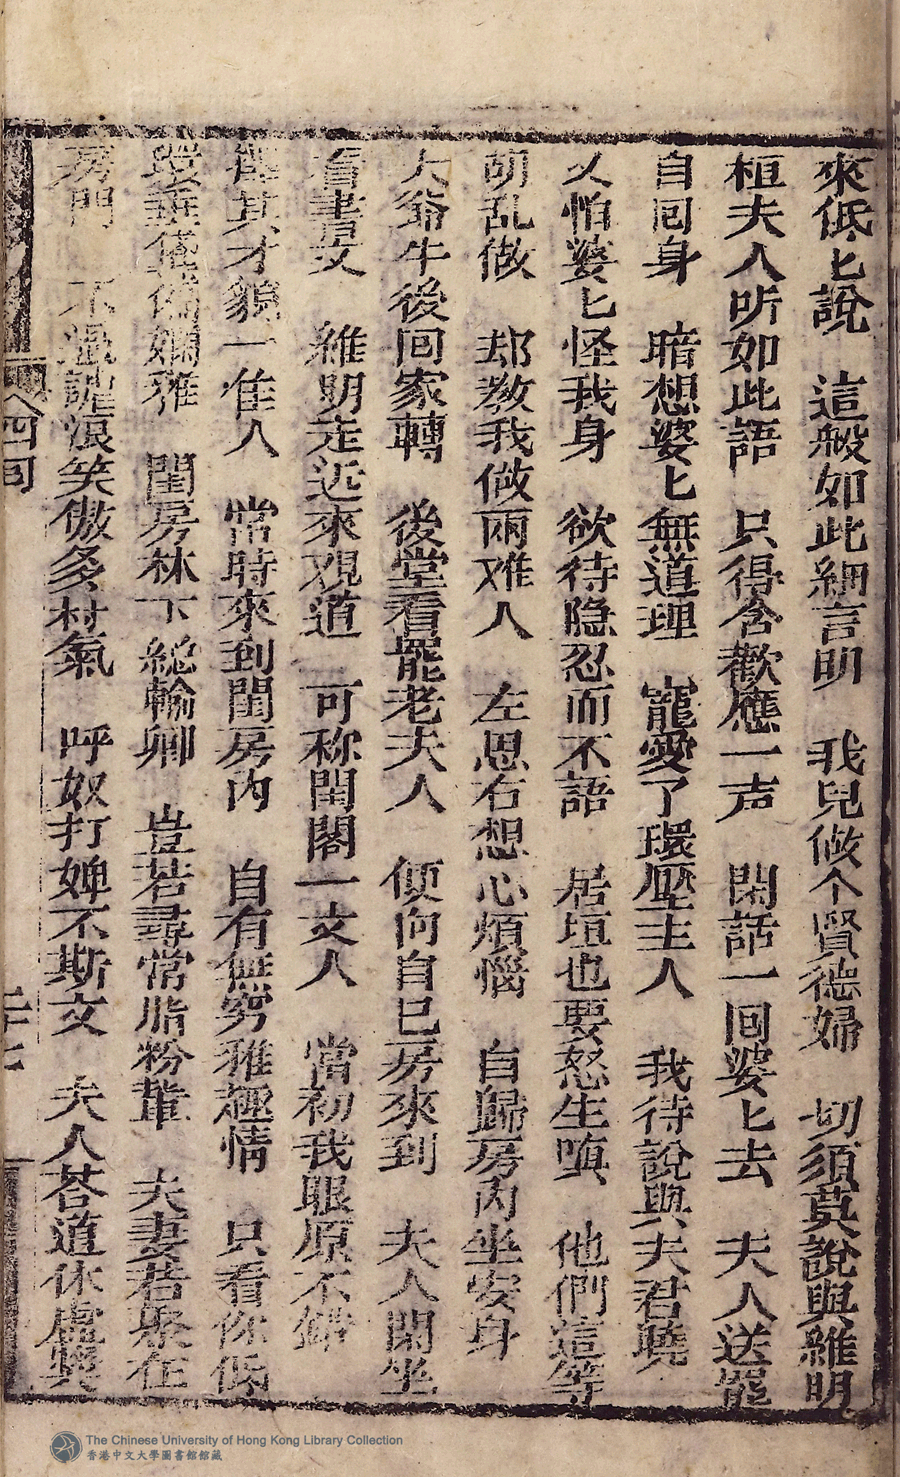 來低匕說　這般如此細言明　我兒做个賢德婦　切須莫說與維明
桓夫人听如此語　只得含歡應一声　閑話一回婆匕去　夫人送罷
自回身　暗想婆匕無道理　寵愛了環壓主人　我待說與夫君曉
又怕婆匕怪我身　欲待隐忍而不語　居垣也要怒生嗔　他們這等
胡乱做　却教我做兩难人　左思右想心煩惱　自歸房內坐安身
大爺午後回家轉　後堂看罷老夫人　便向自已房來到　夫人閑坐
看書文　維明走近來观道　可称閨閣一文人　當初我眼原不錯
其才貌一佳人　常時來到閨房內　自有無穷雅趣情　只看你低
嫻雅　閨房林下総輸卿　豈若尋常脂粉輩　夫妻若聚在
房門　不過詼浪笑傲多村氣　呼奴打婢不斯文　夫人荅道休虛奬
四回
二十七
The Chinese University of Hong Kong Library Collection
香港中文大學圖書館館藏